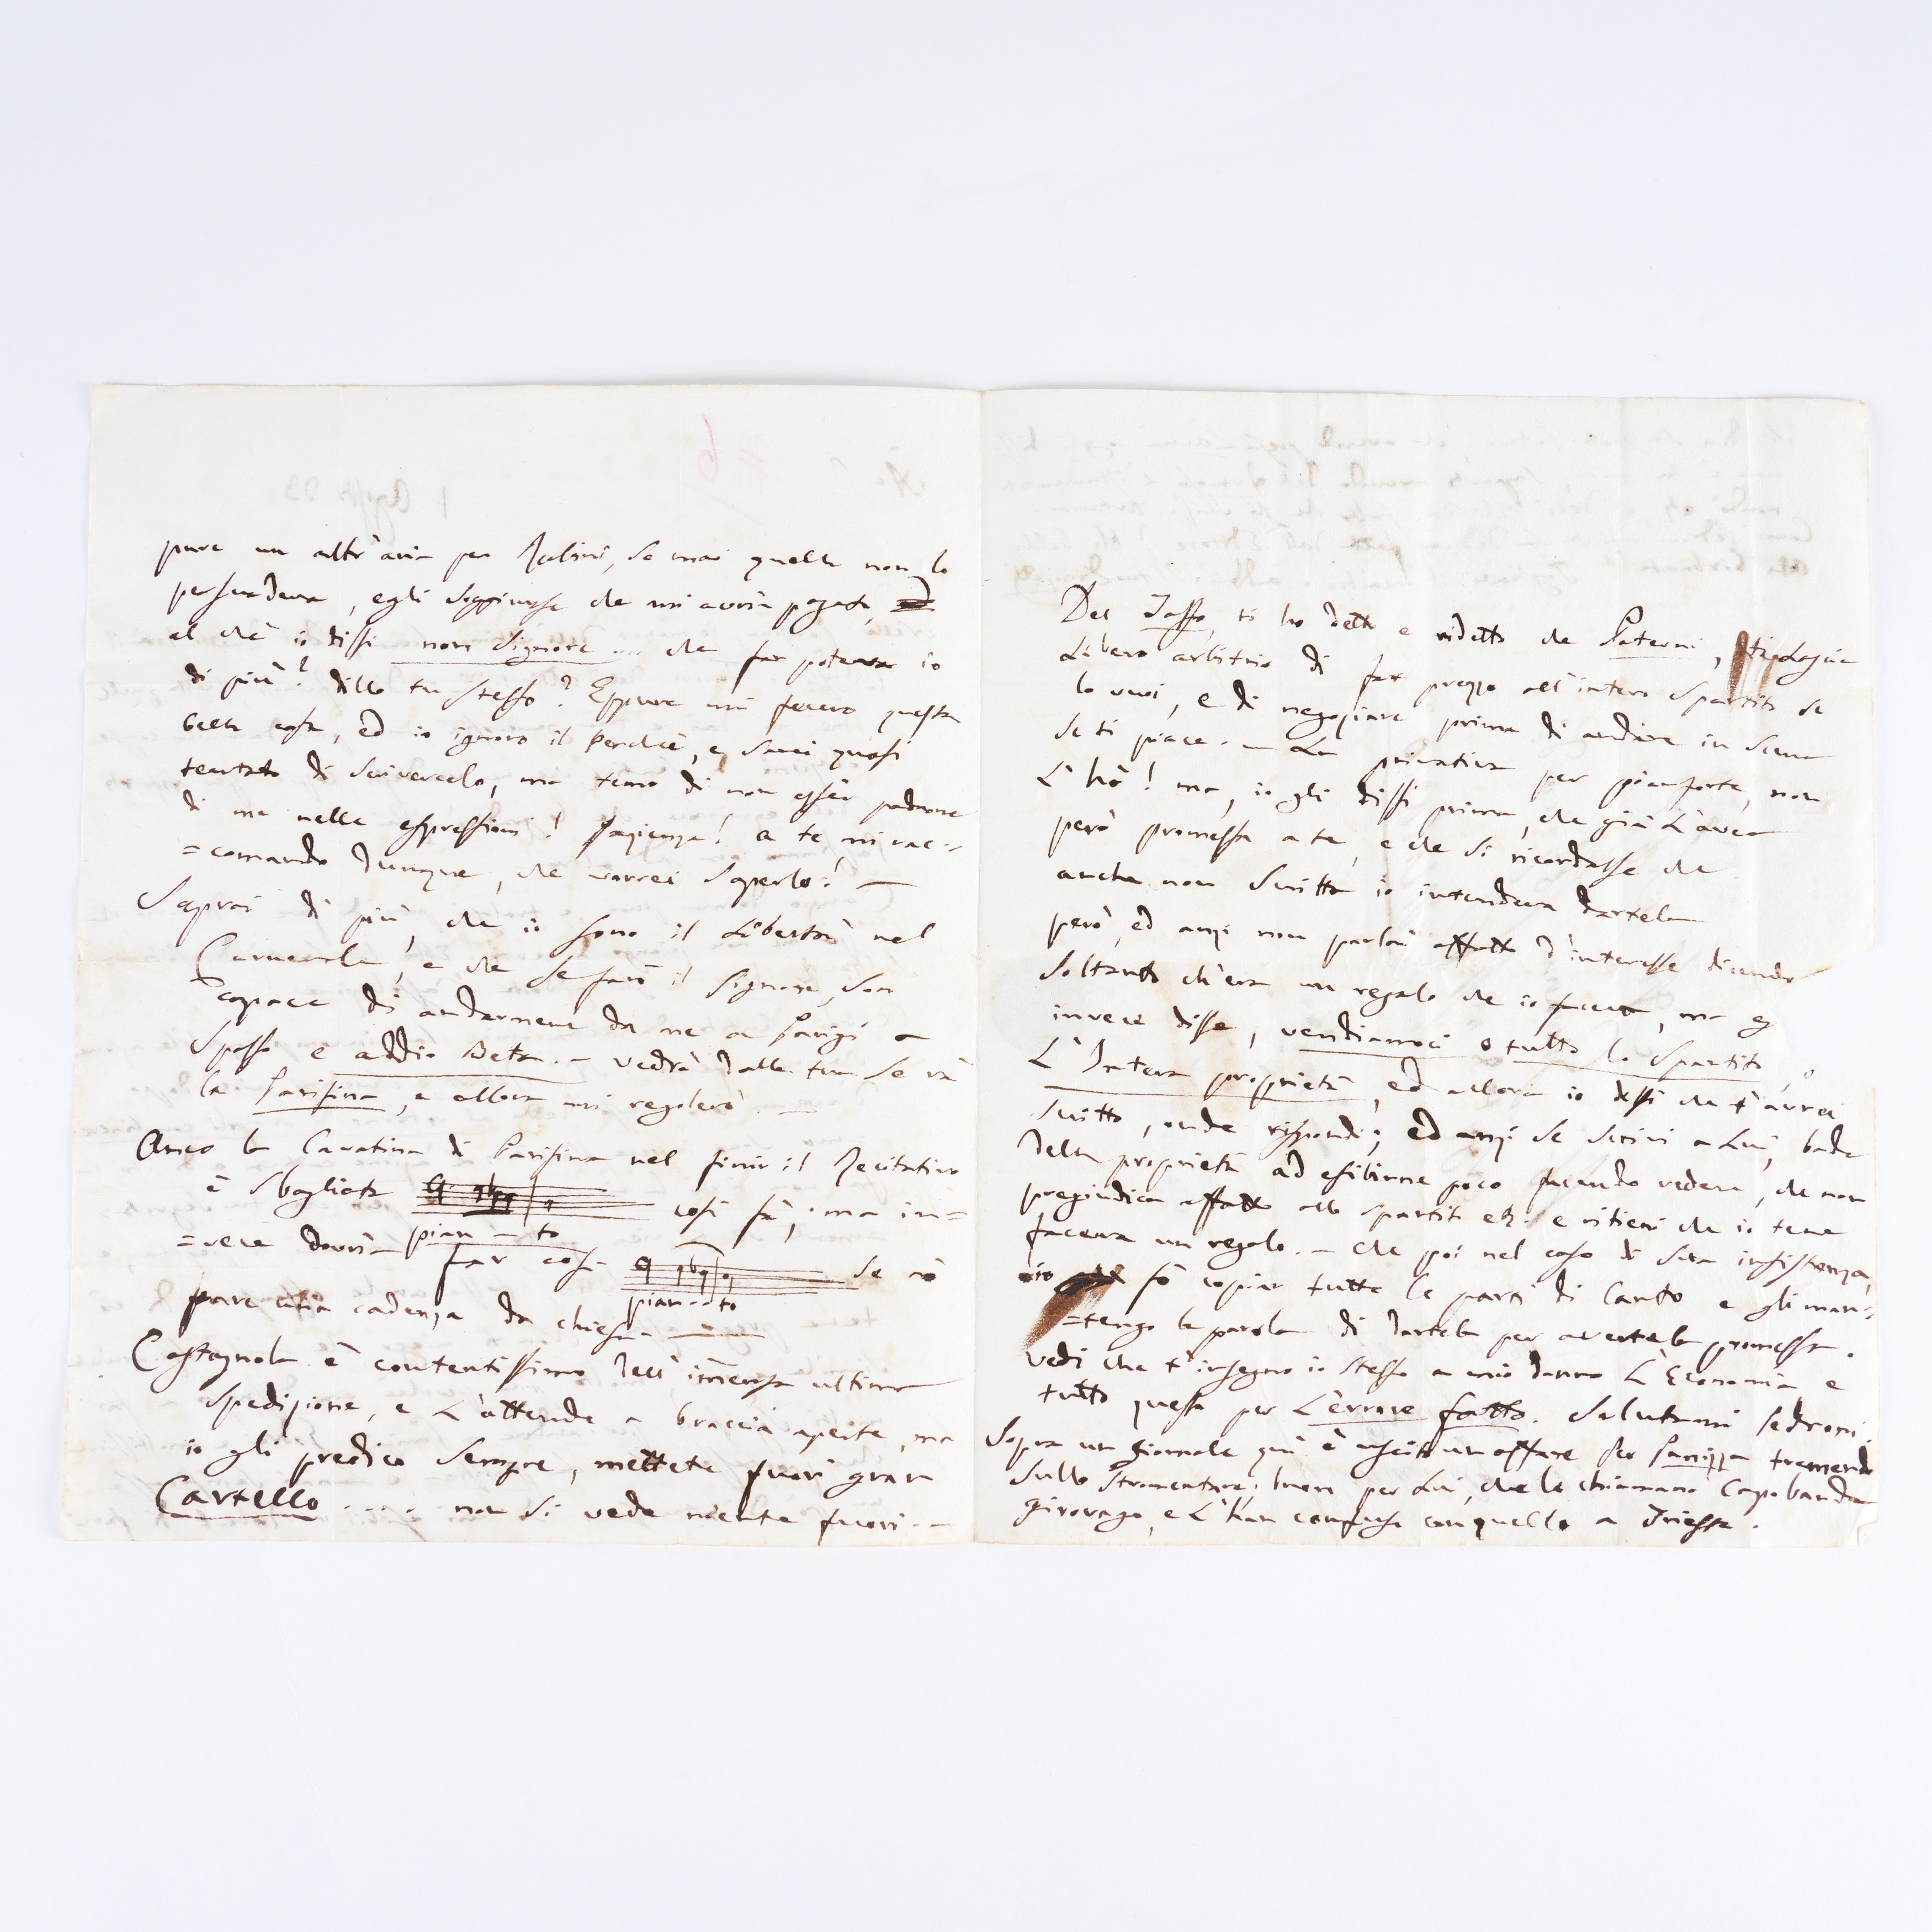 6
1 Agosto 33
pure un altr'aria per Rubini, se mai quella non lo
persuadeva, egli soggiunse che mi avria pagato,
al che io dissi non Signore ... che far poteva io
di più? dillo tu stesso? Eppure mi fecero questa
bella cosa, ed io ignoro il perché, e sarei quasi
tentato di scrivercelo, ma temo di non esser padrone
di me nelle espressioni! pazienza! a te mi rac=
=comando dunque, che vorrei saperlo! —
Saprai di più, che io sono il Libertà nel
Carnevale! e che se farò il Signore, son
capace di andarmene da me a Parigi a
spasso e addio Beta. — vedrò dalla tua se và
la Parisina, e allora mi regolerò. —
Anco la Cavatina di Parisina nel finir il Recitativo
è sbagliata così fà, ma in=
pian — to
=vece dovria far così se nò
pian — to
pare una cadenza da chiesa —
Castagnola è contentissimo dell' im̄ensa ultima
spedizione, e L'attende a braccia aperte, ma
io gli predico sempre, mettete fuori gran
Cartello ..... non si vede niente fuori. —
Del Tasso, ti ho detto e ridetto che Paterni, ti lascia
Libero arbitrio di far prezzo all'intero spartito se
lo vuoi, e di negoziare prima di andare in scena
se ti piace. — La privativa per pianforte, non
L'hò! ma, io gli dissi prima, che già L'aveo
però promessa a te, e che si ricordasse che
anche non scritto io intendeva dartela
però, ed anzi non parlai affatto d'interesse dicendo
soltanto ch'era un regalo che io faceva, ma eg
invece disse, vendiamoci o tutto lo spartito, o
L'Intera proprietà, ed allora io dissi che t'avrei
scritto, onde rispondi; ed anzi se scrivi a Lui, bada
della proprietà ad esibirne poco facendo vedere, che non
pregiudica affatto allo spartito etz: e ritieni che io te ne
faceva un regalo. — che poi nel caso di sua insistenza,
io fò copiar tutte le parti di Canto e gli man=
=tengo la parola di dartela per avertela promessa.
vedi che t'insegno io stesso a mio danno L'Economia e
tutto questo per L'errore fatto. Salutami Pedroni.
Sopra un giornale quì è uscito un affare per Panizza tremendo
sullo stromentare; buon per Lui, che lo chiamano Capobanda
girovago, e L'han confuso con quello a Trieste.